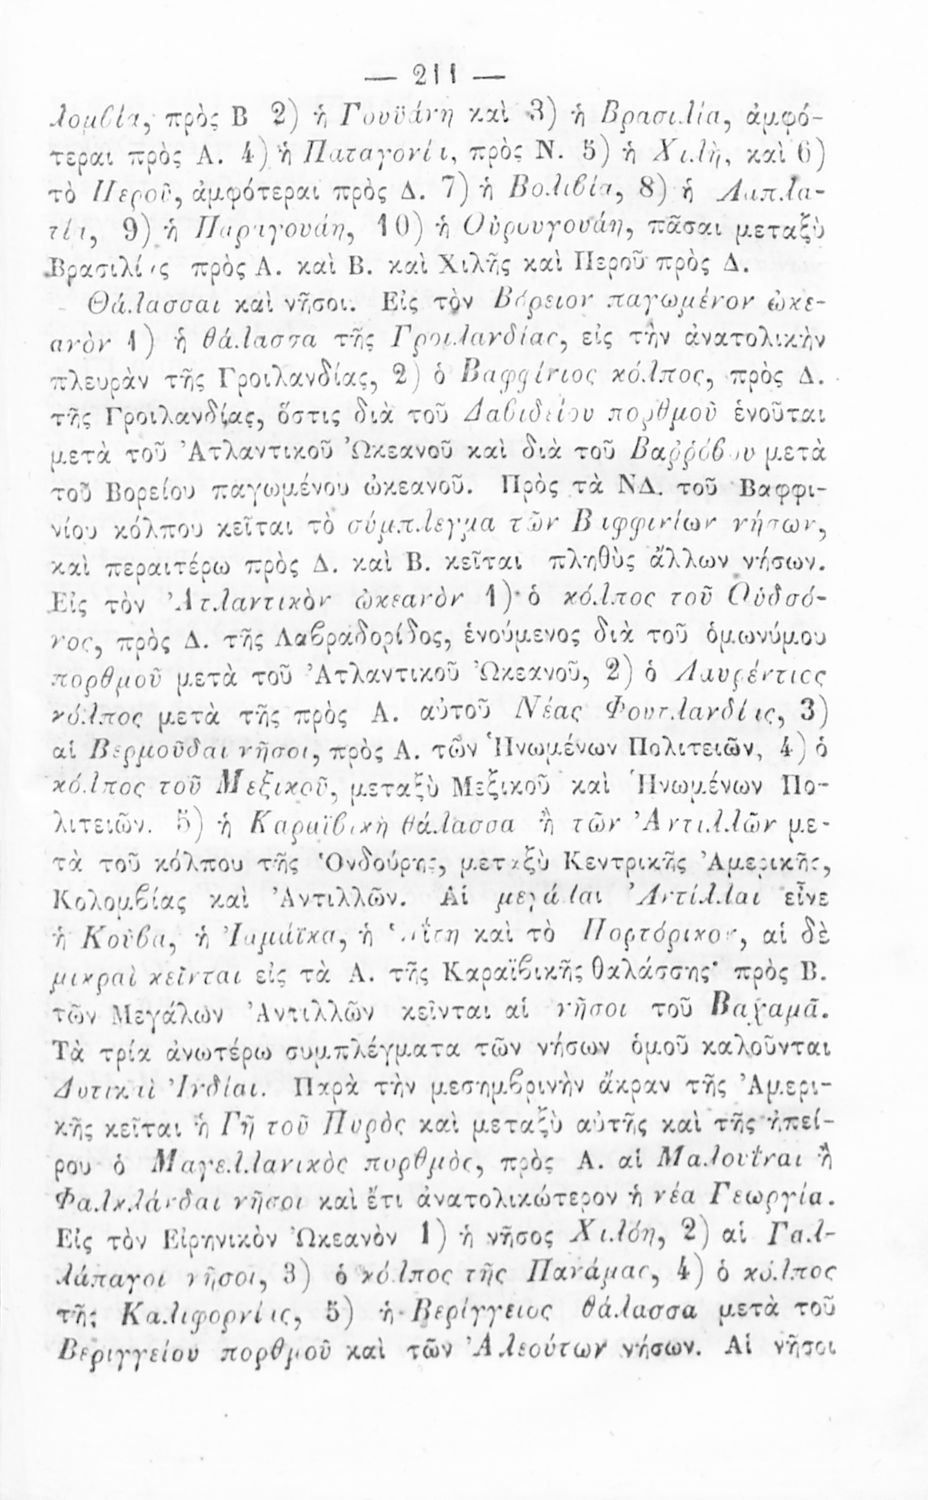 — 211 —
λομβία, πρὸς Β 2) ἡ Γουϋάνη καὶ 3) ἡ Βρασιλία, ἀμφό-
τεραι πρὸς Α. 4) ἡ Παταγονία, πρὸς Ν. 5) ἡ Χιλὴ, καὶ 6)
τὸ Περοῦ, ἀμφότεραι πρὸς Δ. 7) ἡ Βολιβία, 8) ἡ Λαπλα-
τία, 9) ἡ Παραγουάη, 10) ἡ Οὐρουγουάη, πᾶσαι μεταξὺ
Βρασιλίας πρὸς Α. καὶ Β. καὶ Χιλῆς καὶ Περοῦ πρὸς Δ.
Θάλασσαι καὶ νῆσοι. Εἰς τὸν Βόρειον παγωμένον ὠκε-
ανὸν 1) ἡ θάλασσα τῆς Γροιλανδίας, εἰς τὴν ἀνατολικὴν
πλευρὰν τῆς Γροιλανδίας, 2) ὁ Βαφφίνιος κόλπος, πρὸς Δ.
τῆς Γροιλανδίας, ὅστις διὰ τοῦ Δαβιδείου πορθμοῦ ἑνοῦται
μετὰ τοῦ Ἀτλαντικοῦ Ὠκεανοῦ καὶ διὰ τοῦ Βαῤῥόβου μετὰ
τοῦ Βορείου παγωμένου ὠκεανοῦ. Πρὸς τὰ ΝΔ. τοῦ Βαφφι-
νίου κόλπου κεῖται τὸ σύμπλεγμα τῶν Βαφφινίων νήσων,
καὶ περαιτέρω πρὸς Δ. καὶ Β. κεῖται πληθὺς ἄλλων νήσων.
Εἰς τὸν Ἀτλαντικὸν ὠκεανὸν 1) ὁ κόλπος τοῦ Οὑδσό-
νος, πρὸς Δ. τῆς Λαβραδορίδος, ἑνούμενος διὰ τοῦ ὁμωνύμου
πορθμοῦ μετὰ τοῦ Ἀτλαντικοῦ Ὠκεανοῦ, 2) ὁ Λαυρέντιος
κόλπος μετὰ τῆς πρὸς Α. αὐτοῦ Νέας Φουνλανδίας, 3)
αἱ Βερμοῦδαι νῆσοι, πρὸς Α. τῶν Ἡνωμένων Πολιτειῶν, 4) ὁ
κόλπος τοῦ Μεξικοῦ, μεταξὺ Μεξικοῦ καὶ Ἡνωμένων Πο-
λιτειῶν. 5) ἡ Καραϊβικὴ θάλασσα ἢ τῶν Ἀντιλλῶν με-
τὰ τοῦ κόλπου τῆς Ὁνδούρης, μεταξὺ Κεντρικῆς Ἀμερικῆς,
Κολομβίας καὶ Ἀντιλλῶν. Αἱ μεγάλαι Ἀντίλλαι εἶνε
ἡ Κούβα, ἡ Ἰαμάϊκα, ἡ Ἁΐτη καὶ τὸ Πορτόρικον, αἱ δὲ
μικραὶ κεῖνται εἰς τὰ Α. τῆς Καραϊβικῆς θαλάσσης· πρὸς Β.
τῶν Μεγάλων Ἀντιλλῶν κεῖνται αἱ νῆσοι τοῦ Βαχαμᾶ.
Τὰ τρία ἀνωτέρω συμπλέγματα τῶν νήσων ὁμοῦ καλοῦνται
Δυτικαὶ Ἰνδίαι. Παρὰ τὴν μεσημβρινὴν ἄκραν τῆς Ἀμερι-
κῆς κεῖται ἡ Γῆ τοῦ Πυρὸς καὶ μεταξὺ αὐτῆς καὶ τῆς ἠπεί-
ρου ὁ Μαγελλανικὸς πορθμὸς, πρὸς Α. αἱ Μαλουῖναι ἢ
Φαλκλάνδαι νῆσοι καὶ ἔτι ἀνατολικώτερον ἡ νέα Γεωργία.
Εἰς τὸν Εἰρηνικὸν Ὠκεανὸν 1) ἡ νῆσος Χιλόη, 2) αἱ Γαλ-
λάπαγοι νῆσοι, 3) ὁ κόλπος τῆς Πανάμας, 4) ὁ κόλπος
τῆς Καλιφορνίας, 5) ἡ Βερίγγειος θάλασσα μετὰ τοῦ
Βεριγγείου πορθμοῦ καὶ τῶν Ἀλεούτων νήσων. Αἱ νῆσοι